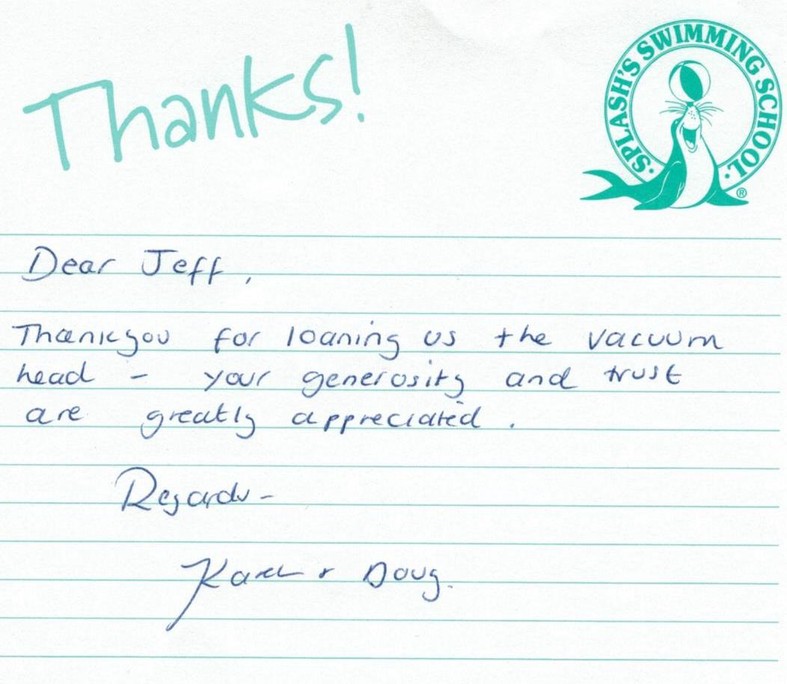 Thanks!
·SPLASH'S SWIMMING SCHOOL·
®
Dear Jeff,
Thankyou for loaning us the vacuum
head - your generosity and trust
are greatly appreciated.
Regards-
+ Doug.